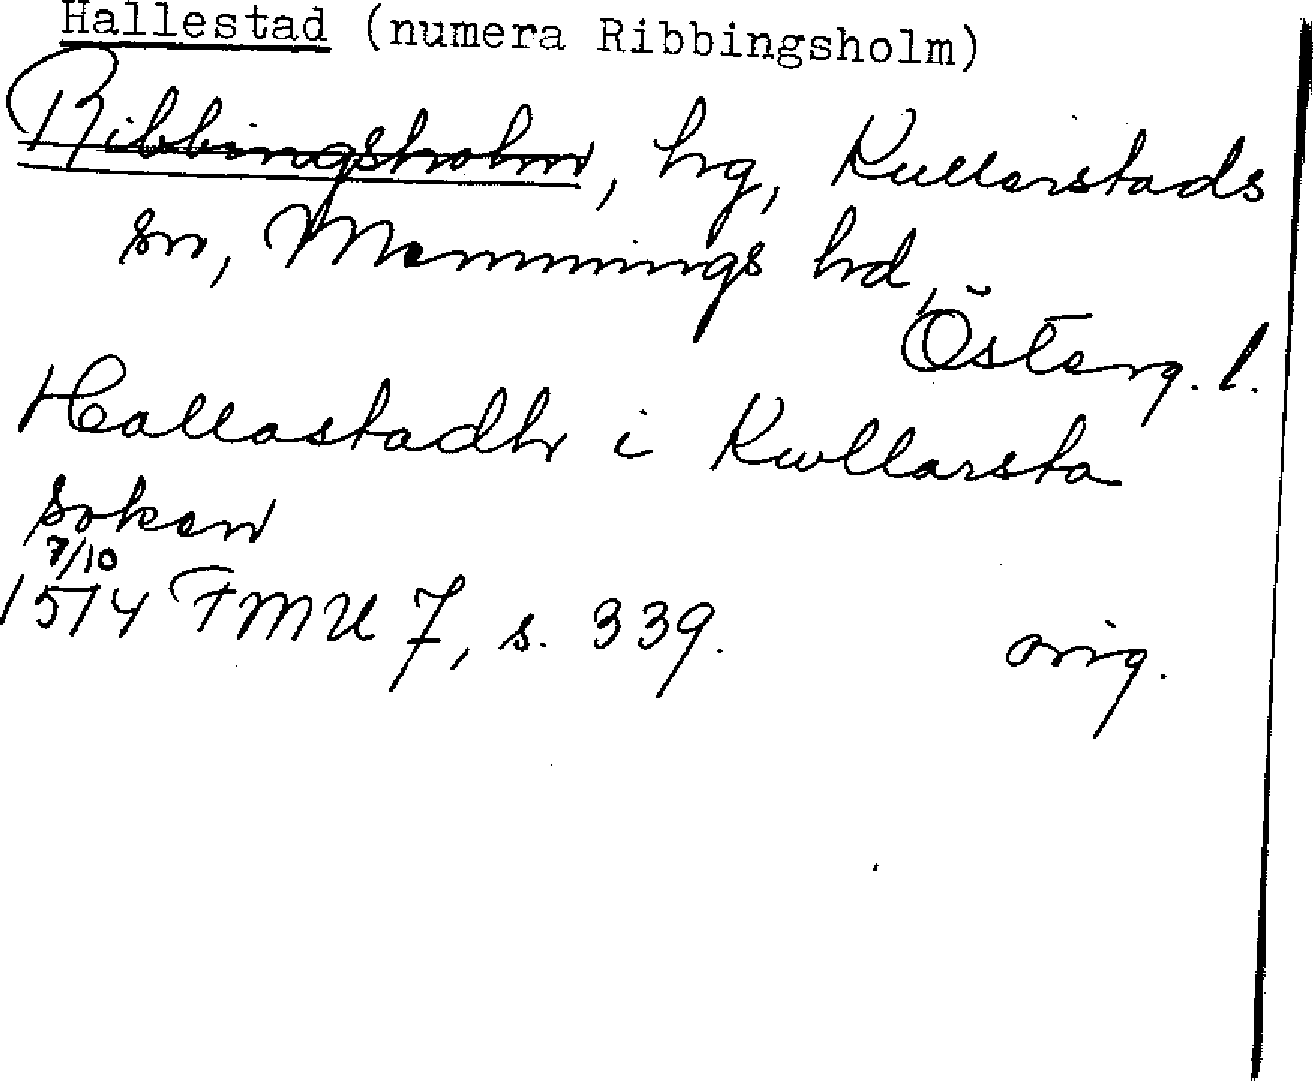 Hallestad (numera Ribbingsholm)
Ribbingsholm, hg, Kullerstads
sn, Memmings hd,
Österg. l.
Hallastadh i Kwllarsta
soken
7/10
1514 FMU 7, s. 339. orig.